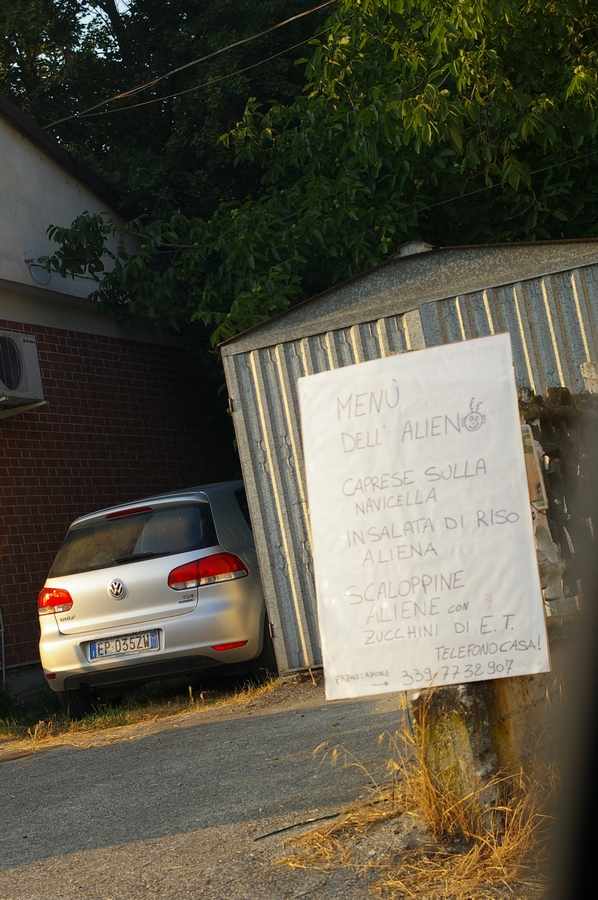 MENÙ
DELL' ALIENO
CAPRESE SULLA
NAVICELLA
INSALATA DI RISO
ALIENA
SCALOPPINE
ALIENE CON
ZUCCHINI DI E.T.
TELEFONO CASA!
PRENOTAZIONE → 339.7732907
GOLF
TDI
EP·035ZW